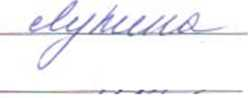 Лунина